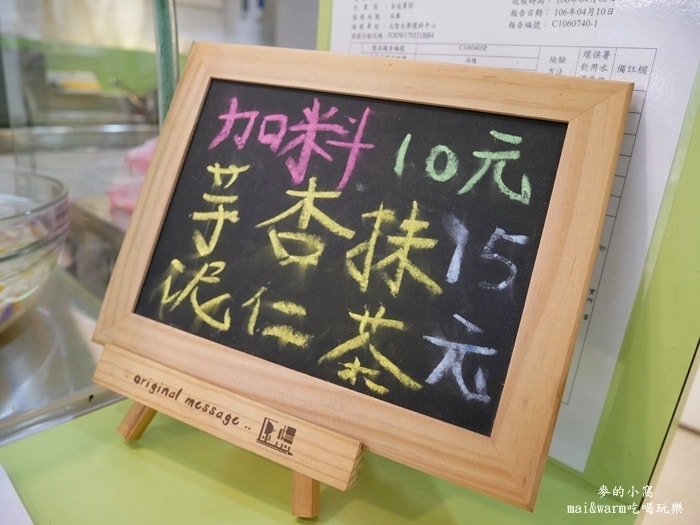 報告日期： 106年04月10日
報告編號： C1060740-1
檢驗
環保署
飲用水
備註欄
加料 10元
芋泥 杏仁 抹茶 15元
original message ..
麥的小窩
mai&warm吃喝玩樂